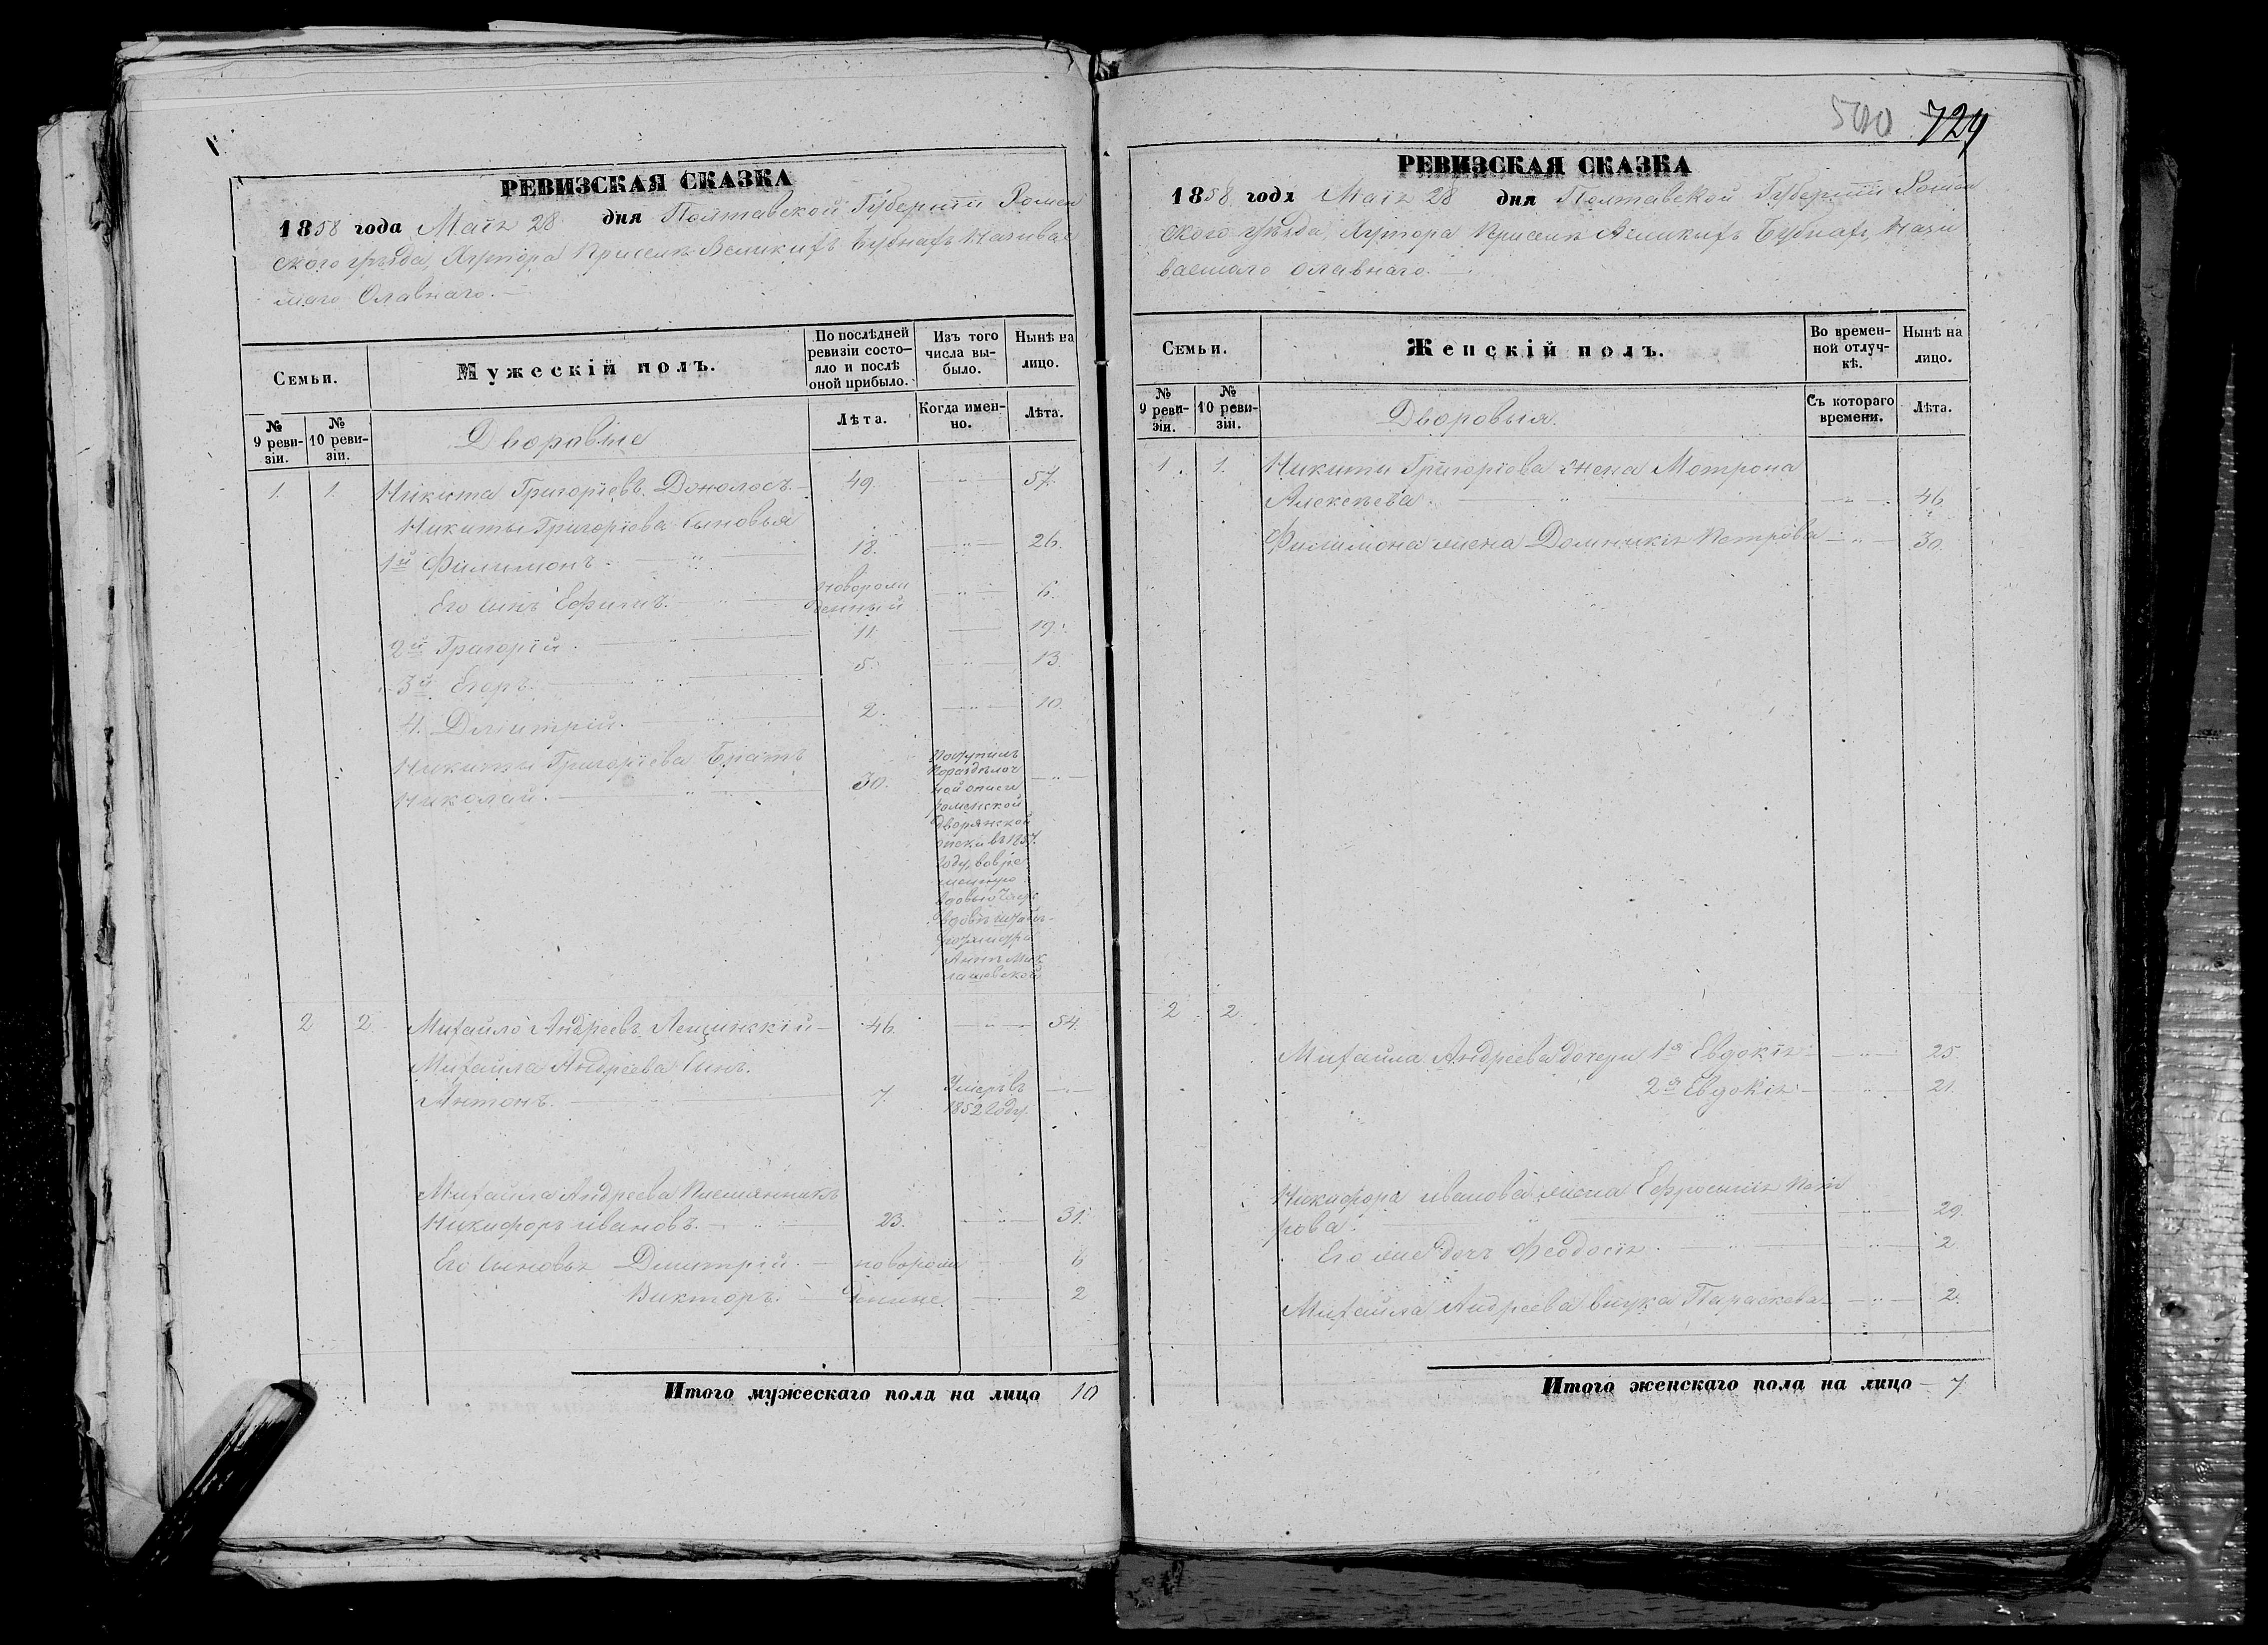 500 724
РЕВИЗСКАЯ СКАЗКА
1858 года Маія 28 дня Полтавской Губерніи Ромен
ского уѣзда, Хутора Приселк Великихъ Бубнахъ Называе
маго Славнаго.
Семьи.
Мужескій полъ.
По послѣдней ревизіи состо-
яло и послѣ
оной прибыло.
Изъ того
числа вы-
было.
Нынѣ на
лицо.
№
9 реви-
зіи.
№
10 реви-
зіи.
Лѣта.
Когда имен-
но.
Лѣта.
Дворовые
1. 1. Никита Григоріевъ 49. — 57.
Никиты Григоріева Сыновья
1й Филимонъ. — 18. — 26.
Его Сынъ Ефимъ. — новорож
денный — 6.
2й Григорій. — 11. — 19.
3й Егоръ. — 5. — 13.
4. Дмитрій. — 2. — 10.
Никиты Григоріева Братъ
Николай. — 30. —
Поступилъ
по раздѣлоч
ной описи
роменской
дворянской
опеки въ 1857
году, во вре
вдовѣ
Аннѣ Мик
лашевской
2 2. Михайло Андреевъ Лещинскій — 46. — 54.
Михайла Андреева Сынъ.
Антонъ. — 7. Умеръ въ
1852 Году.
Михайла Андреева Племянникъ
Никифоръ Ивановъ. — 23. — 31.
Его Сыновья Дмитрій. — новорож — 6
Викторъ. — 2
Итого мужескаго пола на лицо 10
РЕВИЗСКАЯ СКАЗКА
1858 года Маія 28 дня Полтавской Губерніи Ромен
ского уѣзда, Хутора Приселк Великихъ Бубнахъ, Назы
ваемаго Славнаго. —
Семьи.
Женскій полъ.
Во времен-
ной отлуч-
кѣ.
Нынѣ на
лицо.
№
9 реви-
зіи.
№
10 реви-
зіи.
Съ котораго
времени.
Лѣта.
Дворовыя.
1. 1. Никиты Григоріева жена Мотрона
Алексѣева. — 46
Филимона жена Домникія Петрова — 30.
2 2.
Михайла Андреева дочери 1я Евдокія — 25
2я Евдокія — 21.
Никифора Иванова жена Ефросинія Пет
рова. — 29.
Его же дочь Феодосія. — 2
Михайла Андреева внука Параскева — 2.
Итого женскаго пола на лицо — 7